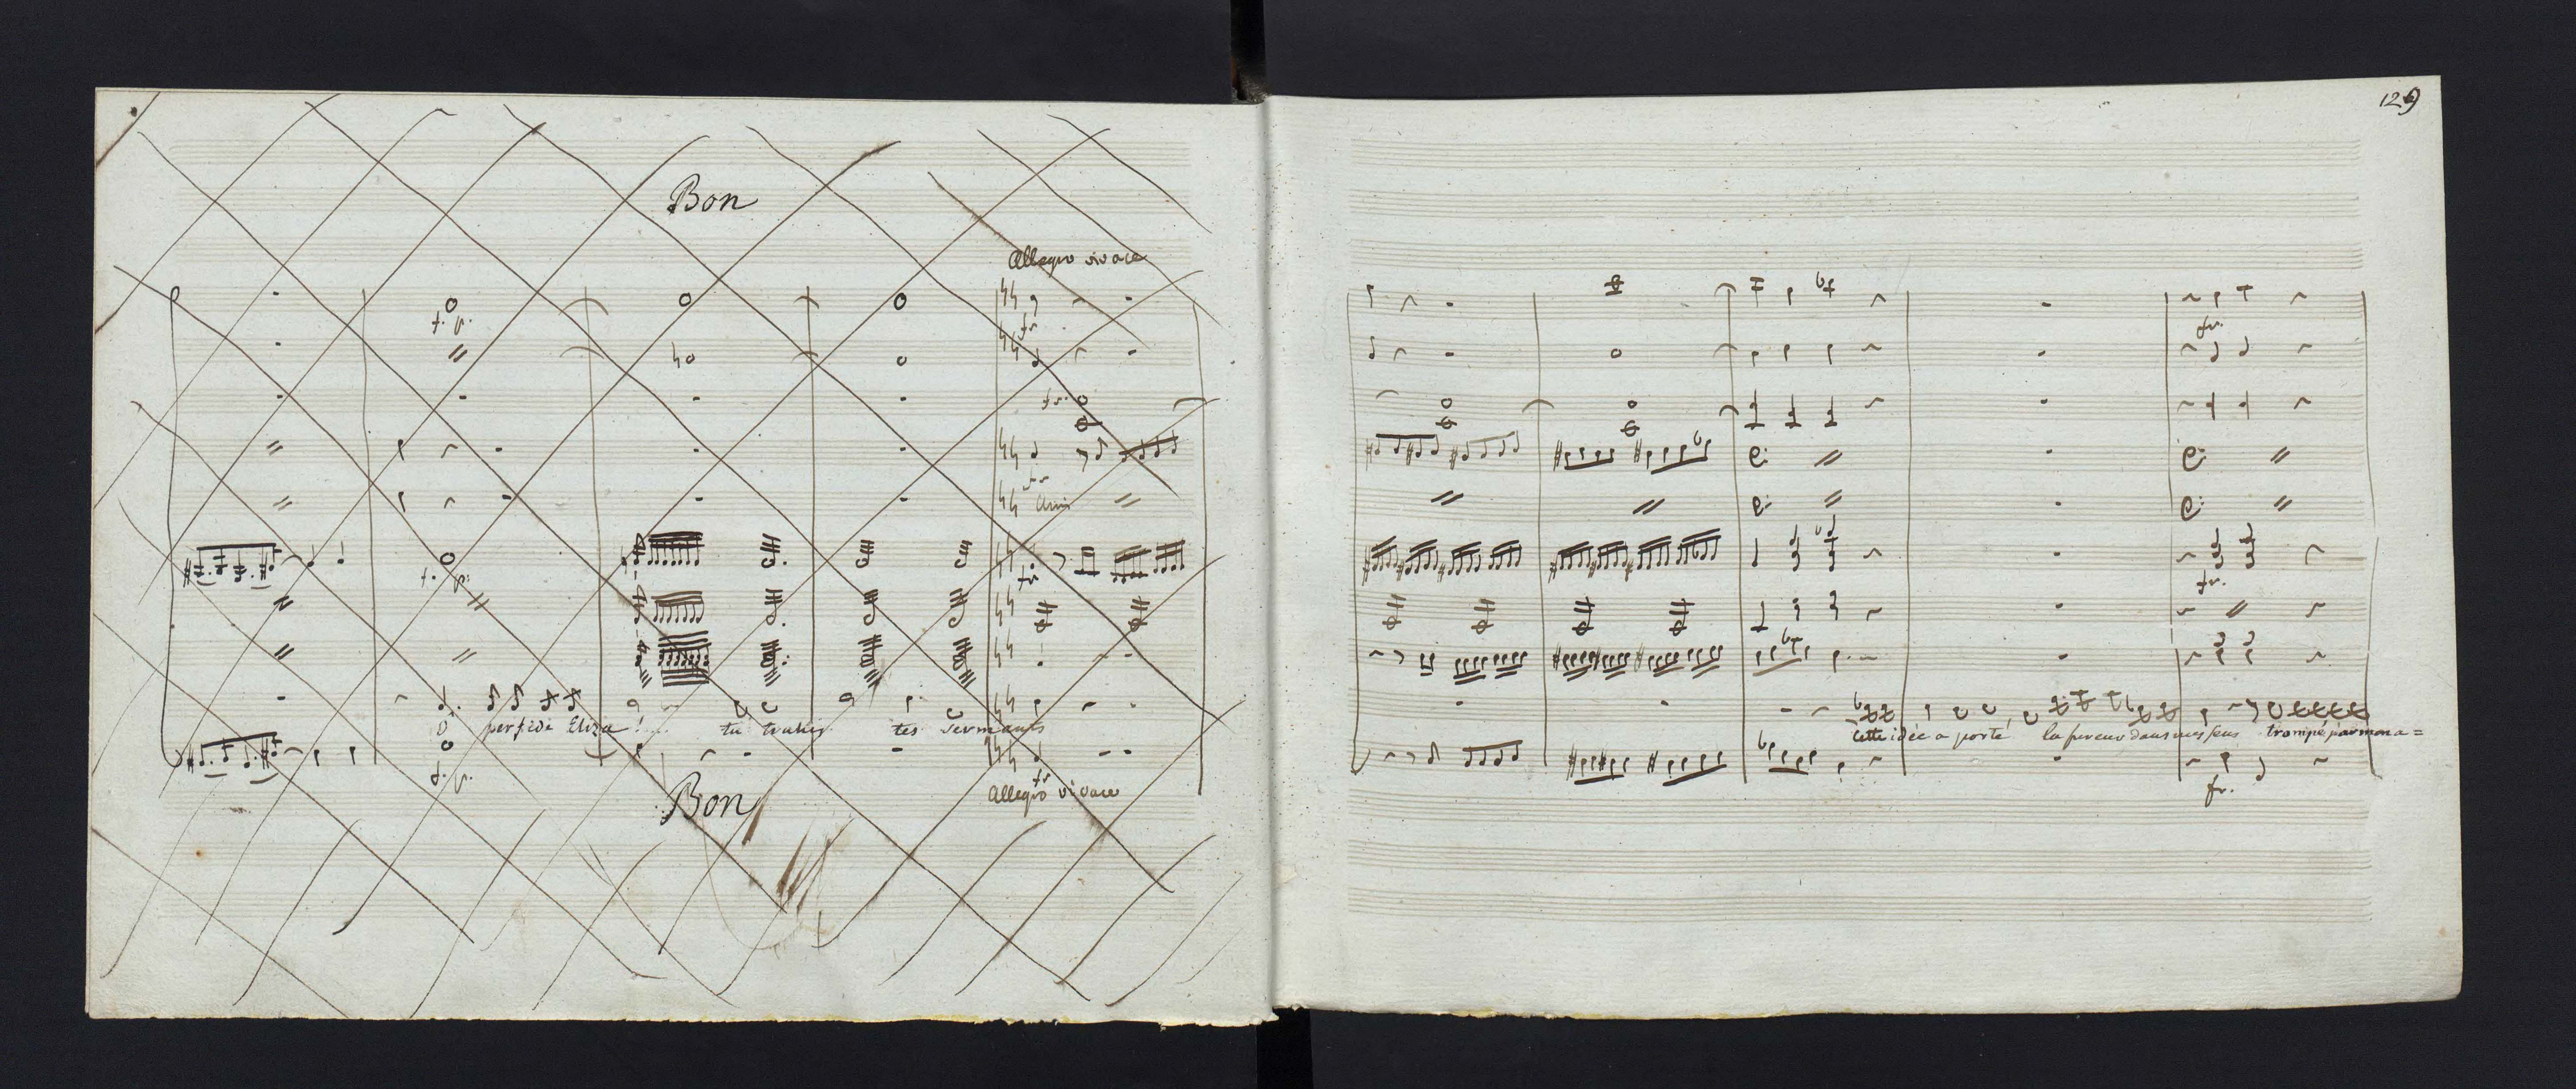 Bon
Allegro vivace
f. p.
fr.
fr.
fr
unis
f. p.
fr
ô perfide Eliza !... tu trahis tes serments
f. p.
fr
Bon
Allegro vivace
129
fr.
fr.
cette idée a porté la fureur dans mes sens trompé par mon a=
fr.